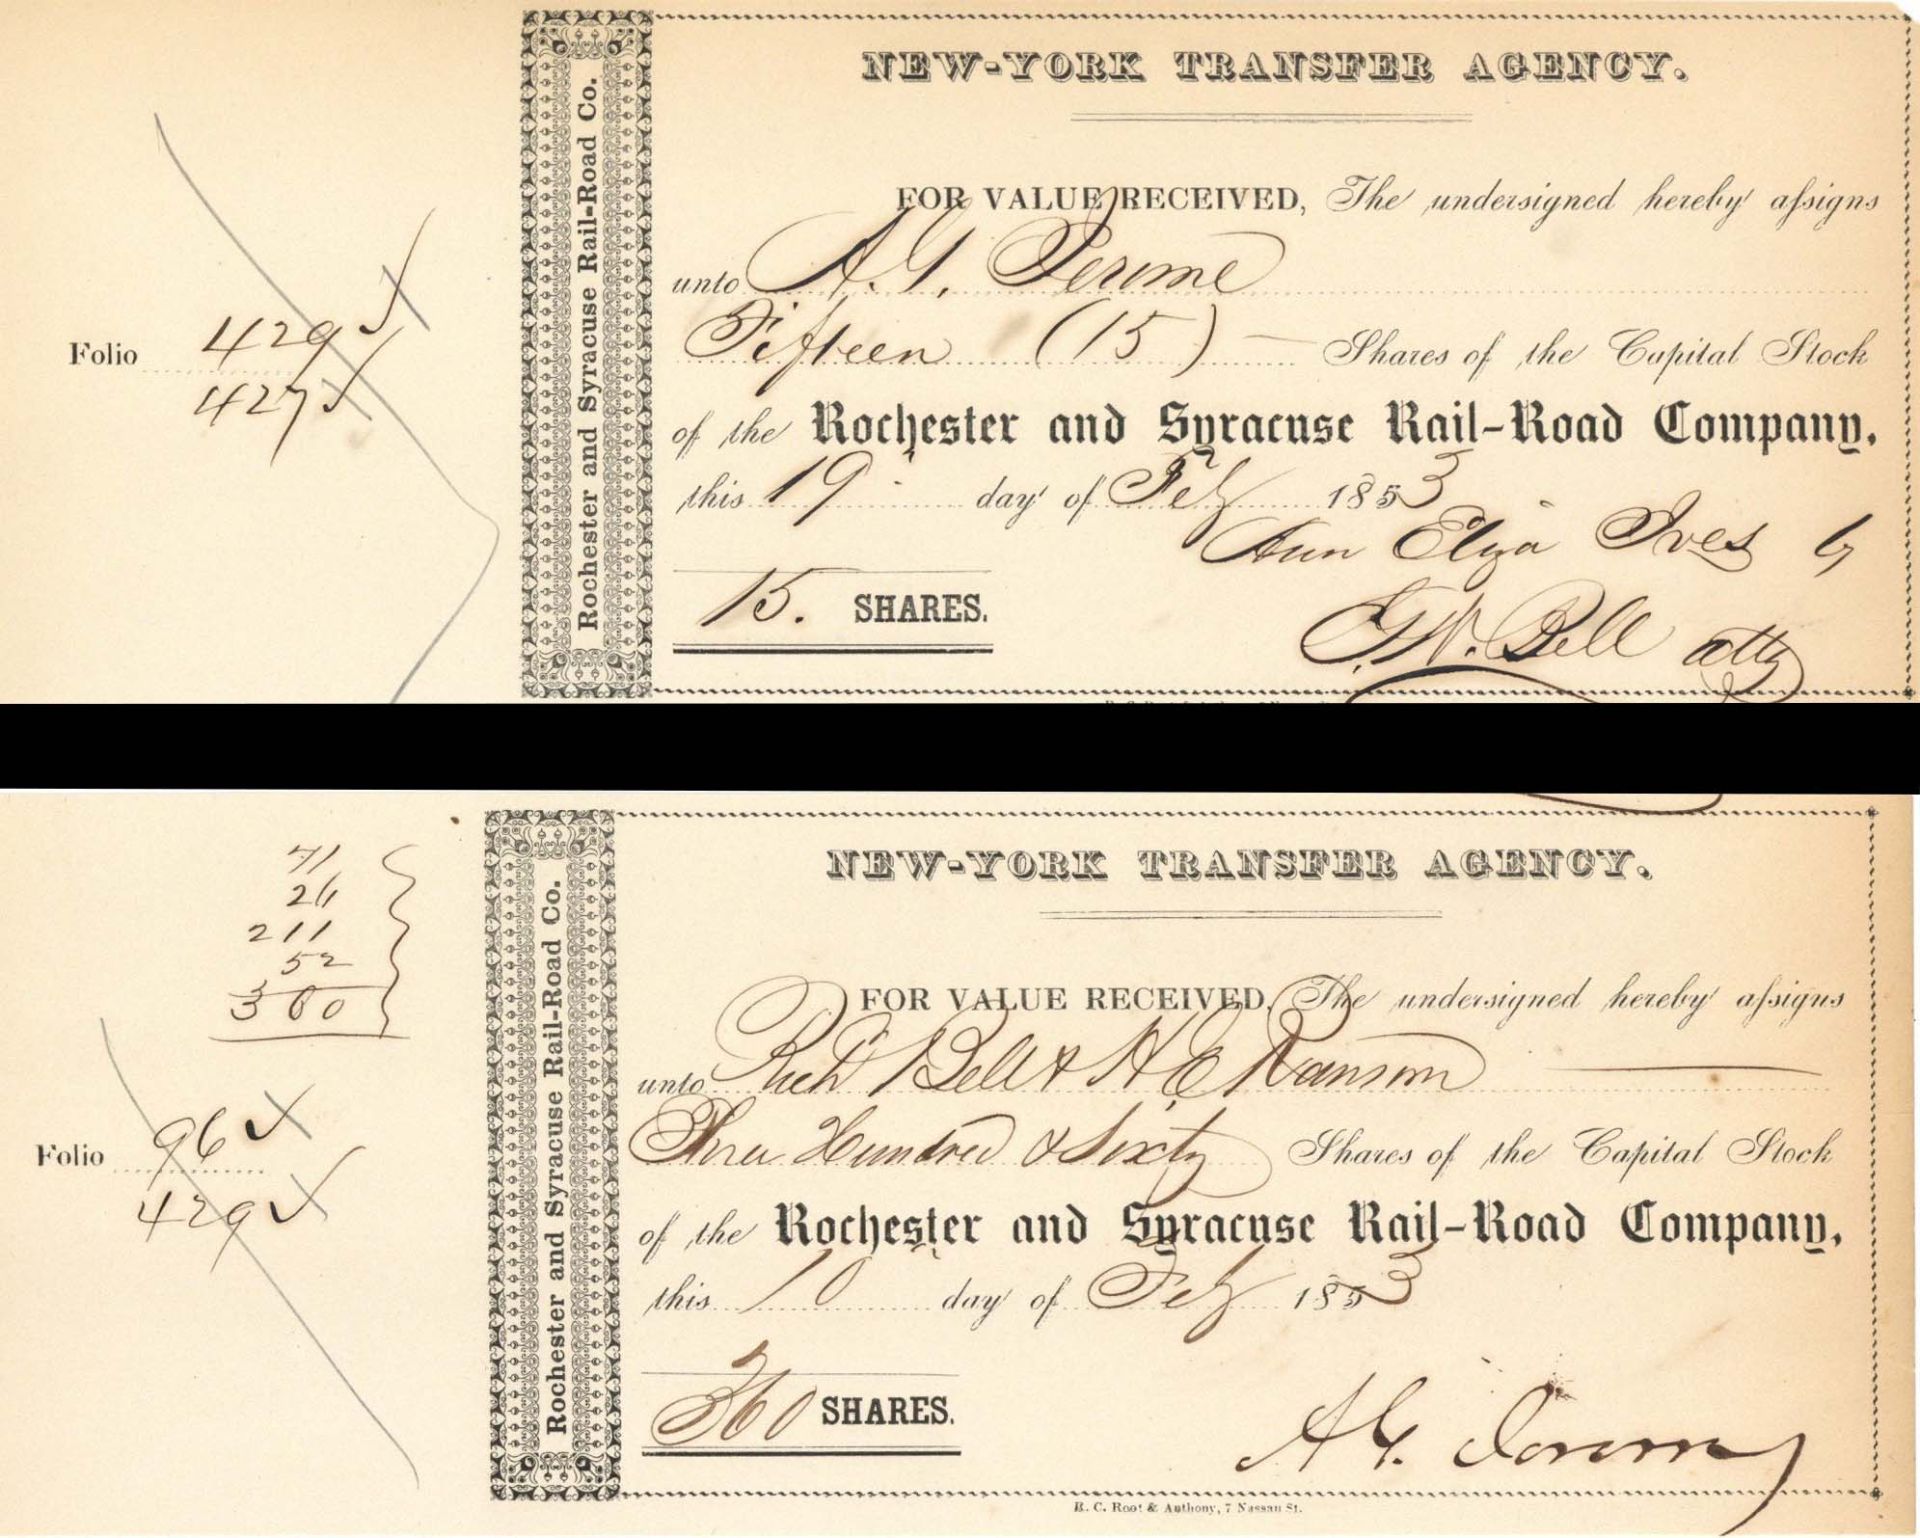 NEW-YORK TRANSFER AGENCY.
Rochester and Syracuse Rail-Road Co.
FOR VALUE RECEIVED, The undersigned hereby assigns
unto A. G. Jerome
Fifteen (15) Shares of the Capital Stock
Folio 429
427
of the Rochester and Syracuse Rail-Road Company,
this 19 day of Feby 1853
Ann Eliza Ives by
15. SHARES.
G. W. Bell atty
NEW-YORK TRANSFER AGENCY.
Rochester and Syracuse Rail-Road Co.
71
26
211
52
360
FOR VALUE RECEIVED, The undersigned hereby assigns
unto Richd Bell & H. E. Ransom
Three Hundred & Sixty Shares of the Capital Stock
Folio 96
429
of the Rochester and Syracuse Rail-Road Company,
this 10 day of Feby 1853
360 SHARES.
A G. Jerome
R. C. Root & Anthony, 7 Nassau St.